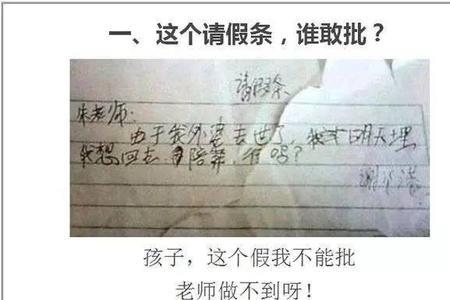 一、这个请假条，谁敢批？
请假条
朱老师：
由于我外婆去世了，我 明天埋
我想回去 陪葬，行吗？
孩子，这个假我不能批
老师做不到呀！